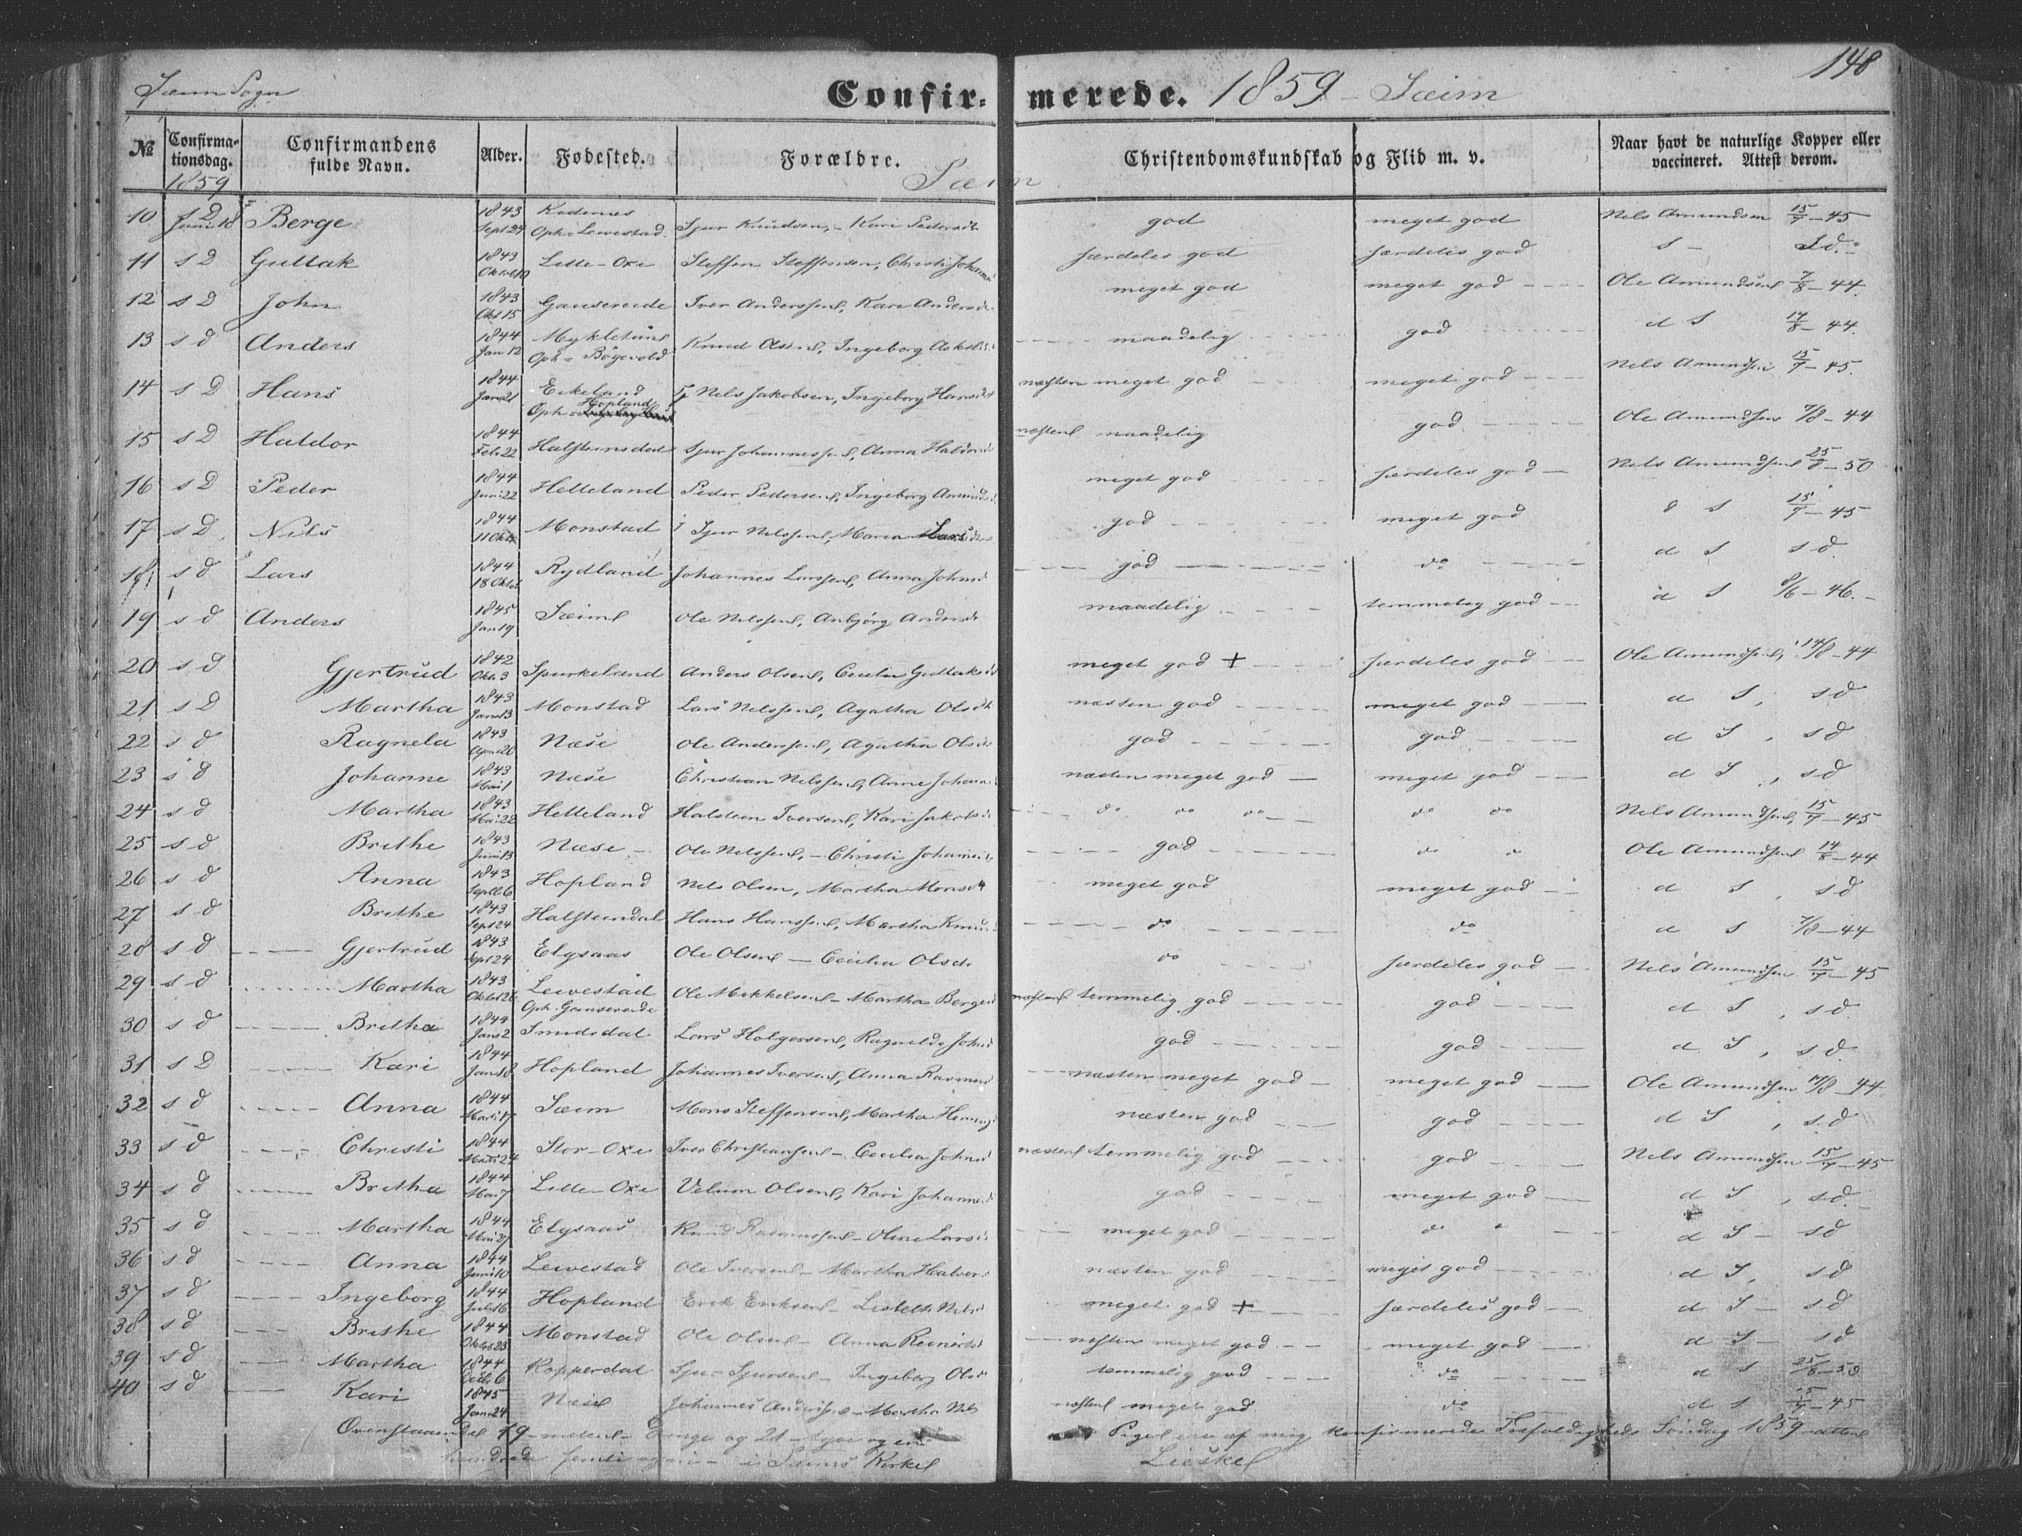 Sæim Sogn
Confirmerede. 1859 - Sæim
148
№ Confirmationsdag. Confirmandens fulde Navn. Alder. Fødested. Forældre. Christendomskundskab og Flid m. v. Naar havt de naturlige Kopper eller vaccineret. Attest derom.
1859 Sæim
10 s D Juni 18 Berge 1843 Sept 24 Oph. Lewestad. Sjur Knudsen, - Kari Pedersdt god meget god Nels Amundsen 15/7 - 45
11 s D Gullak 1843 Oktob 10 Litle-Oxe Steffen Steffensen, Christi Johann særdeles god særdeles god s - Sd.
12 s D John 1843 Okt 15 Gausereide Iver Anderssen, Kari Andersd meget god meget god Ole Amundsen 7/8 - 44.
13 s d Anders 1844 Jan 12 Mykletun Oph. Bögevold Knud Olsen, Ingeborg maadelig god d S 14/8 - 44.
14 s D Hans 1844 Jan 21 Eikeland Oph Hopland Nels Jakobsen, Ingeborg Hansdt næsten meget god meget god Nels Amundsen 15/7 - 45.
15 s D Haldor 1844 Febr 22 Halsteinsdal Sjur Johannessen, Anna Haldorsd næsten maadelig god Ole Amundsen 7/8 - 44
16 s D Peder 1844 Juni 22 Helleland Peder Pedersen, Ingeborg Amundsd meget god særdeles god Nels Amundsen 25/8 - 50
17 s D Nils 1844 11 Okt Monstad Sjur Nelssen, Maria Larsdtr god meget god d S 15/7 - 45
18 s d Lars 1844 18 Oktob Rydland Johannes Larssen, Anna Johnsd god do d S s d
19 s d Anders 1845 Jan 19 Sæim Ole Nelssen, Anbjörg Andersd maadelig temmelig god d S 8/6 - 46.
20 s d Gjertrud 1842 Okt. 3 Spurkeland Anders Olsen, Cecelia Gullaksd meget god + særdeles god Ole Amundsen 14/8 - 44
21 s D Martha 1843 Jan 13 Monstad Lars Nelssen, Agatha Olsdt næsten god meget god d S, s d
22 s d Ragnela 1843 April 20 Næse Ole Anderssen, Agatha Olsd god god d S, s d
23 s d Johanne 1843 Mai 1 Næse Christian Nelssen, Anne Johannd næsten meget god meget god d S, s d
24 s d Martha 1843 Mai 22 Helleland Halsteen Iversen, Kari Jakobsd do do do do do Nels Amundsen 15/7 - 45
25 s d Brithe 1843 Juni 13 Næse Ole Nelssen, - Christi Johannesd god do do Ole Amundsen 14/8 - 44
26 s d Anna 1843 Septb 6 Hopland Nels Olsen, Martha Monsdt meget god meget god d S, s d
27 s d Brithe 1843 Sept 24 Halsteindal Hans Hanssen, Martha Knuds do do d S 7/8 - 44
28 s d Gjertrud 1843 Sept 24 Elgsaas Ole Olsen - Cecilia Olsdt do særdeles god Nels Amundsen 15/7 - 45
29 s d Martha 1843 Oktob 26 Lewestad Oph. Gausereide Ole Mikkelsen - Martha Bergesd næsten temmelig god god d S, s d.
30 s d Britha 1844 Jan 2 Smidsdal Lars Holgersen, Ragnilde Johnsd god god d S, s d.
31 s D Kari 1844 Jan 18 Hopland Johannes Iversen, Anna Rasmusd næsten meget god meget god Ole Amundsen 14/8 - 44
32 s d Anna 1844 Marts 17 Sæim Mons Steffensen, Martha Heming næsten god god d S, s d
33 s d Christi 1844 Marts 24 Stor-Oxe Iver Christiansen - Cecilia Johnsd næsten temmelig god god Nels Amundsen 15/7 - 45
34 s d Britha 1844 Mai 7 Litle-Oxe Velum Olsen, Kari Johannesd god meget god d S, s d.
35 s d Martha 1844 Mai 27 Elgsaas Knud Rasmussen - Oline Larsd meget god do d S - s d
36 s d Anna 1844 Juni 10 Lewestad Ole Iversen - Martha Halvors næsten god meget god d S, s d
37 s d Ingeborg 1844 Juli 16 Hopland Erik Eriksen - Lisbeth Nelsd meget god + særdeles god d S - s d
38 s d Brithe 1844 Oktob 23 Monstad Ole Olsen - Anna Reinertsd næsten meget god meget god d S - s d
39 s d Martha 1844 6 Kopperdal Sjur Sjursen - Ingeborg Olsd temmelig god do d S 25/8 - 50
40 s d Kari 1845 Jan 24 Næse Johannes Anderssen - Martha Nels næsten meget god do d S 15/7 - 45
Ovenstaaende 19 - nitten - Drenge og 21 - og en Piger ere af mig konfirmerede Trefoldigheds Söndag 1859 - atten
hundrede femti og ni - i Sæims Kirke